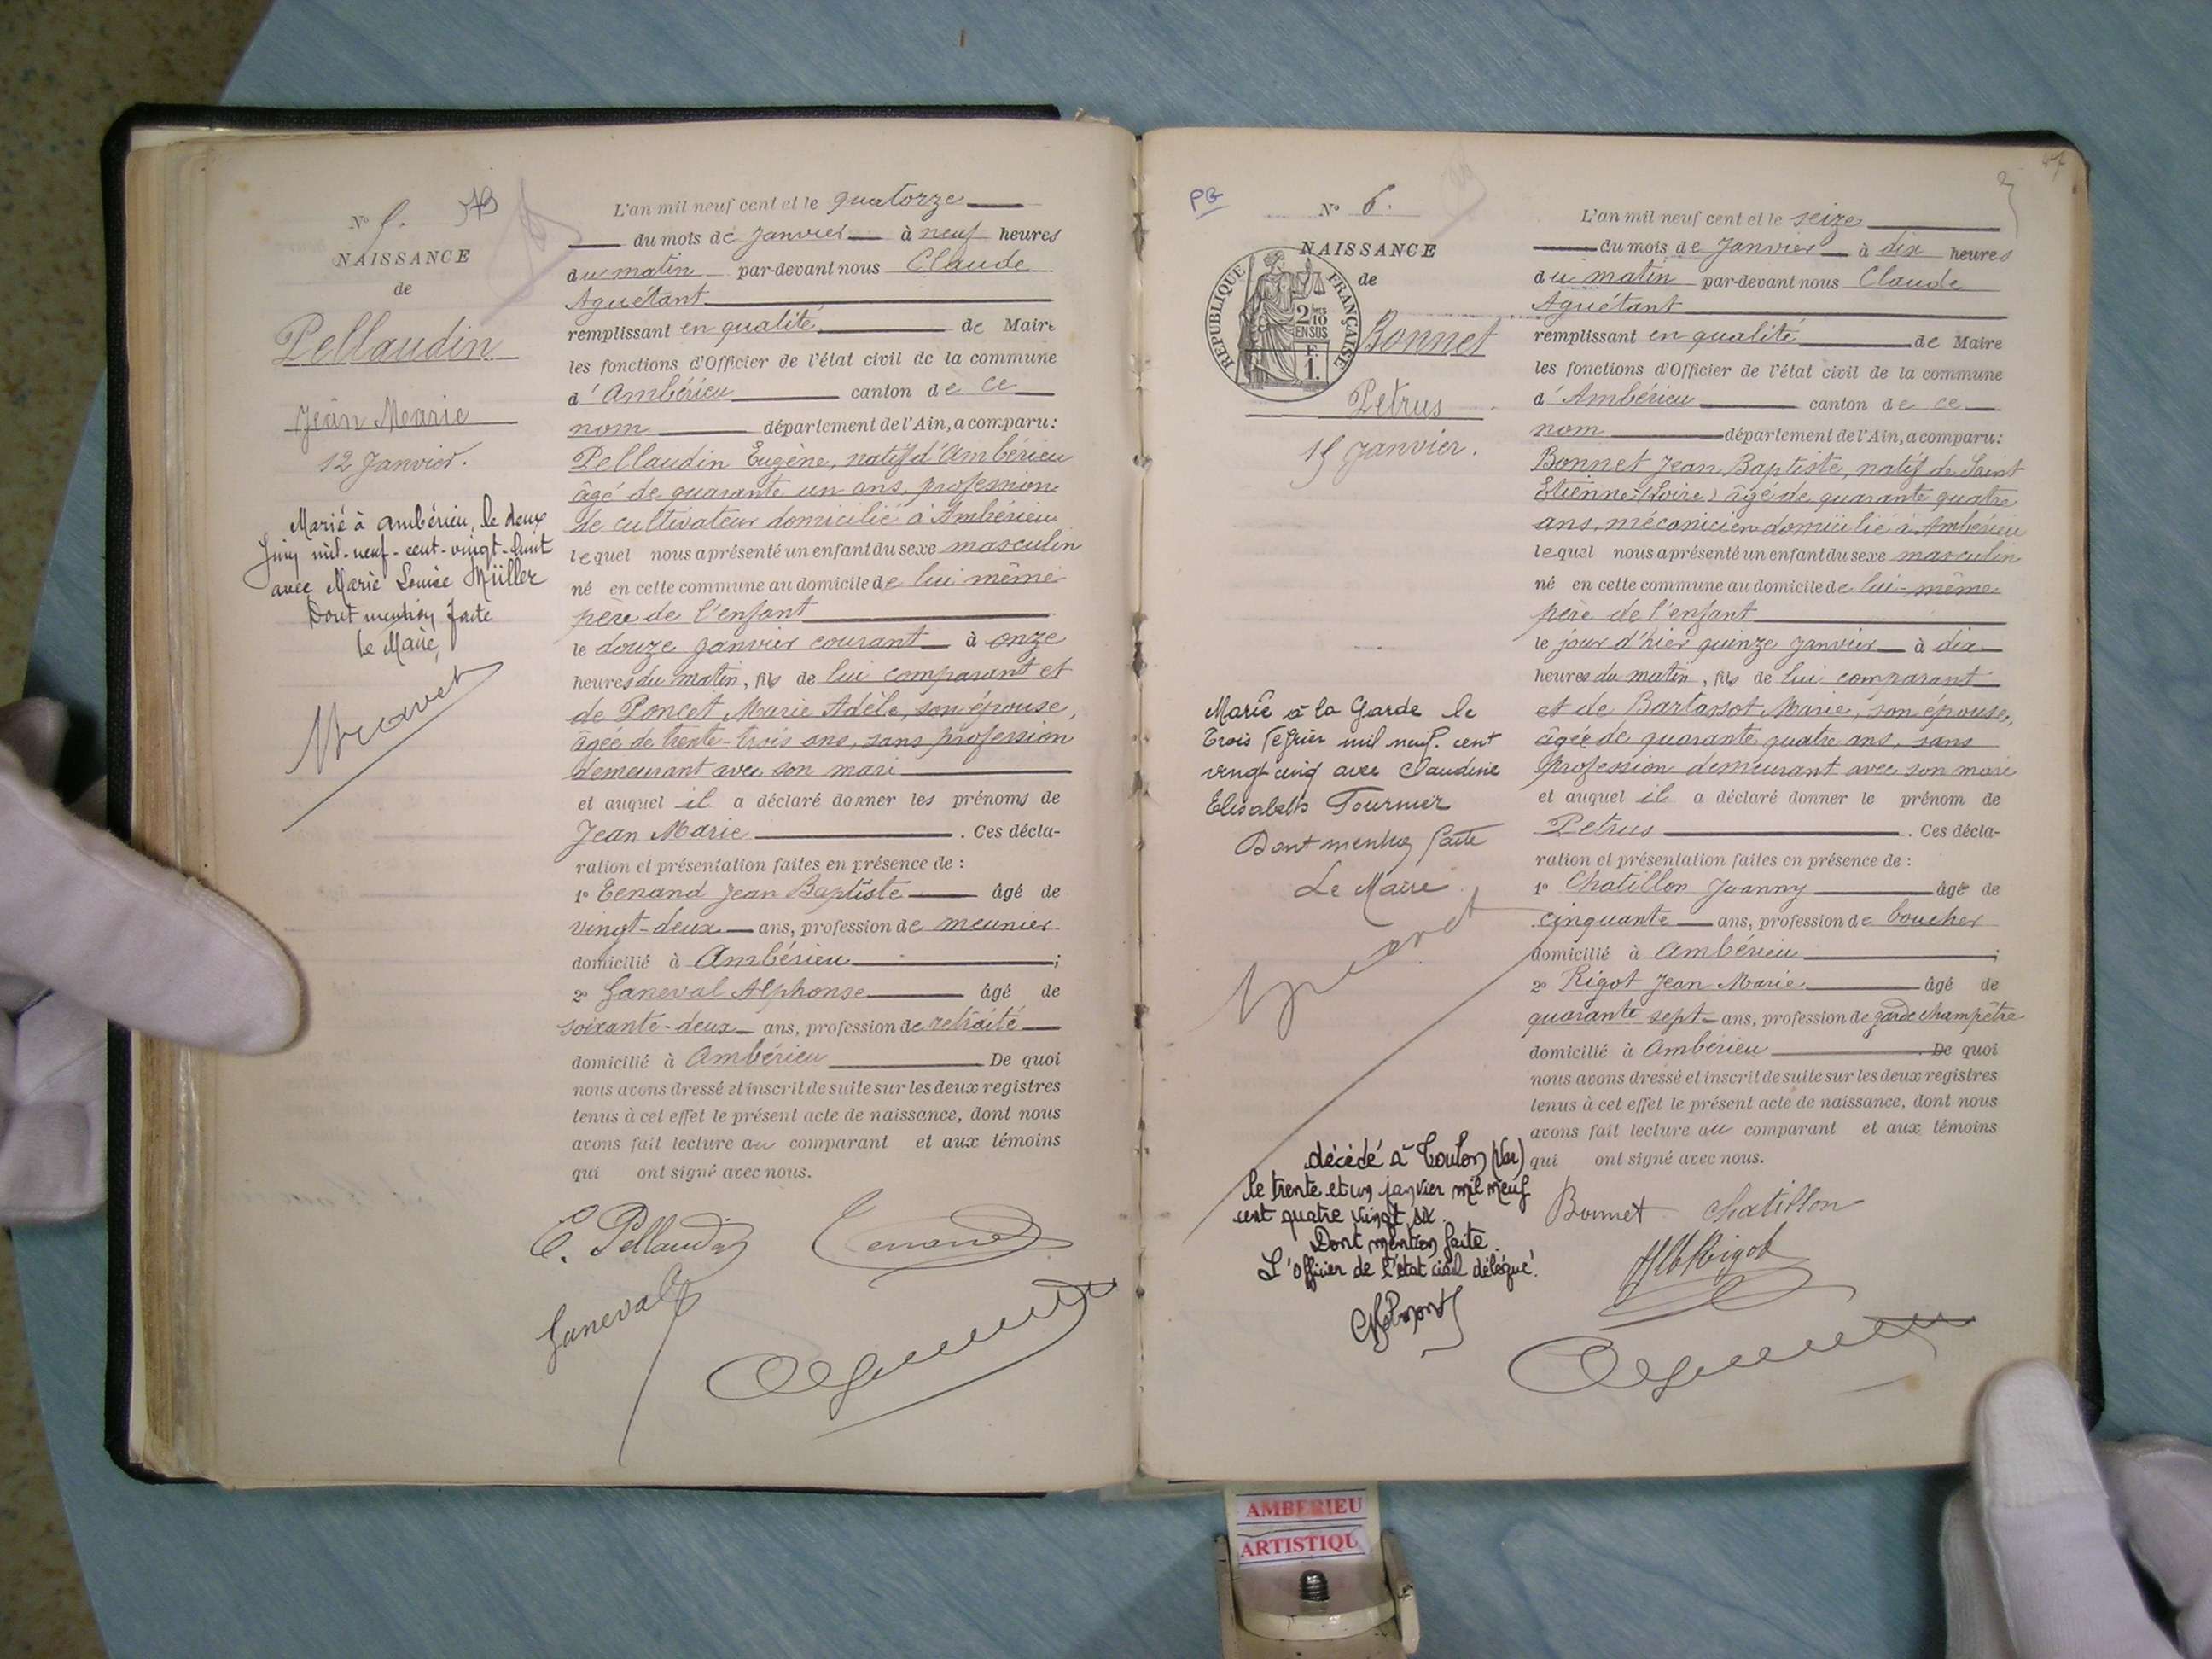 N° 5.
NAISSANCE
de
Pellaudin
Jean Marie
12 Janvier.
Marié à Ambérieu, le deux
Juin mil-neuf-cent-vingt-huit
avec Marie Louise Müller
Dont mention faite
Le Maire,
L'an mil neuf cent et le quatorze
du mois de Janvier à neuf heures
du matin par-devant nous Claude
Aguétant
remplissant en qualité de Maire
les fonctions d'Officier de l'état civil de la commune
d'Ambérieu canton de ce
nom département de l'Ain, a comparu:
Pellaudin Eugène, natif d'Ambérieu
âgé de quarante un ans, profession
de cultivateur domicilié à Ambérieu
lequel nous a présenté un enfant du sexe masculin
né en cette commune au domicile de lui même
père de l'enfant
le douze Janvier courant à onze
heures du matin, fils de lui comparant et
de Poncet Marie Adèle, son épouse,
âgée de trente-trois ans, sans profession
demeurant avec son mari
et auquel il a déclaré donner les prénoms de
Jean Marie. Ces décla-
ration et présentation faites en présence de :
1° Tenand Jean Baptiste âgé de
vingt-deux ans, profession de meunier
domicilié à Ambérieu ;
2° Ganeval Alphonse âgé de
soixante-deux ans, profession de retraité
domicilié à Ambérieu De quoi
nous avons dressé et inscrit de suite sur les deux registres
tenus à cet effet le présent acte de naissance, dont nous
avons fait lecture au comparant et aux témoins
qui ont signé avec nous.
E. Pellaudin Tenand
Ganeval
PG
N° 6.
NAISSANCE
de
REPUBLIQUE FRANÇAISE
2/10 EN SUS
F.
1.
Bonnet
Petrus
15 Janvier.
Marié à la Garde le
Trois Février mil neuf cent
vingt cinq avec Claudine
Elisabeth Fournier
Dont mention faite
Le Maire
décédé à Toulon (Var)
le trente et un janvier mil neuf
cent quatre vingt six.
Dont mention faite.
L'Officier de l'état civil délégué.
L'an mil neuf cent et le seize
du mois de Janvier à dix heures
du matin par-devant nous Claude
Aguétant
remplissant en qualité de Maire
les fonctions d'Officier de l'état civil de la commune
d'Ambérieu canton de ce
nom département de l'Ain, a comparu:
Bonnet Jean Baptiste, natif de Saint
Etienne (Loire) âgé de quarante quatre
ans, mécanicien domicilié à Ambérieu
lequel nous a présenté un enfant du sexe masculin
né en cette commune au domicile de lui-même
père de l'enfant
le jour d'hier quinze Janvier à dix
heures du matin, fils de lui comparant
et de Bartassot Marie, son épouse,
âgée de quarante quatre ans, sans
profession demeurant avec son mari
et auquel il a déclaré donner le prénom de
Petrus. Ces décla-
ration et présentation faites en présence de :
1° Chatillon Joanny âgé de
cinquante ans, profession de boucher
domicilié à Ambérieu ;
2° Rigot Jean Marie âgé de
quarante sept ans, profession de garde champêtre
domicilié à Ambérieu. De quoi
nous avons dressé et inscrit de suite sur les deux registres
tenus à cet effet le présent acte de naissance, dont nous
avons fait lecture au comparant et aux témoins
qui ont signé avec nous.
Bonnet Chatillon
Rigot
AMBERIEU
ARTISTIQU